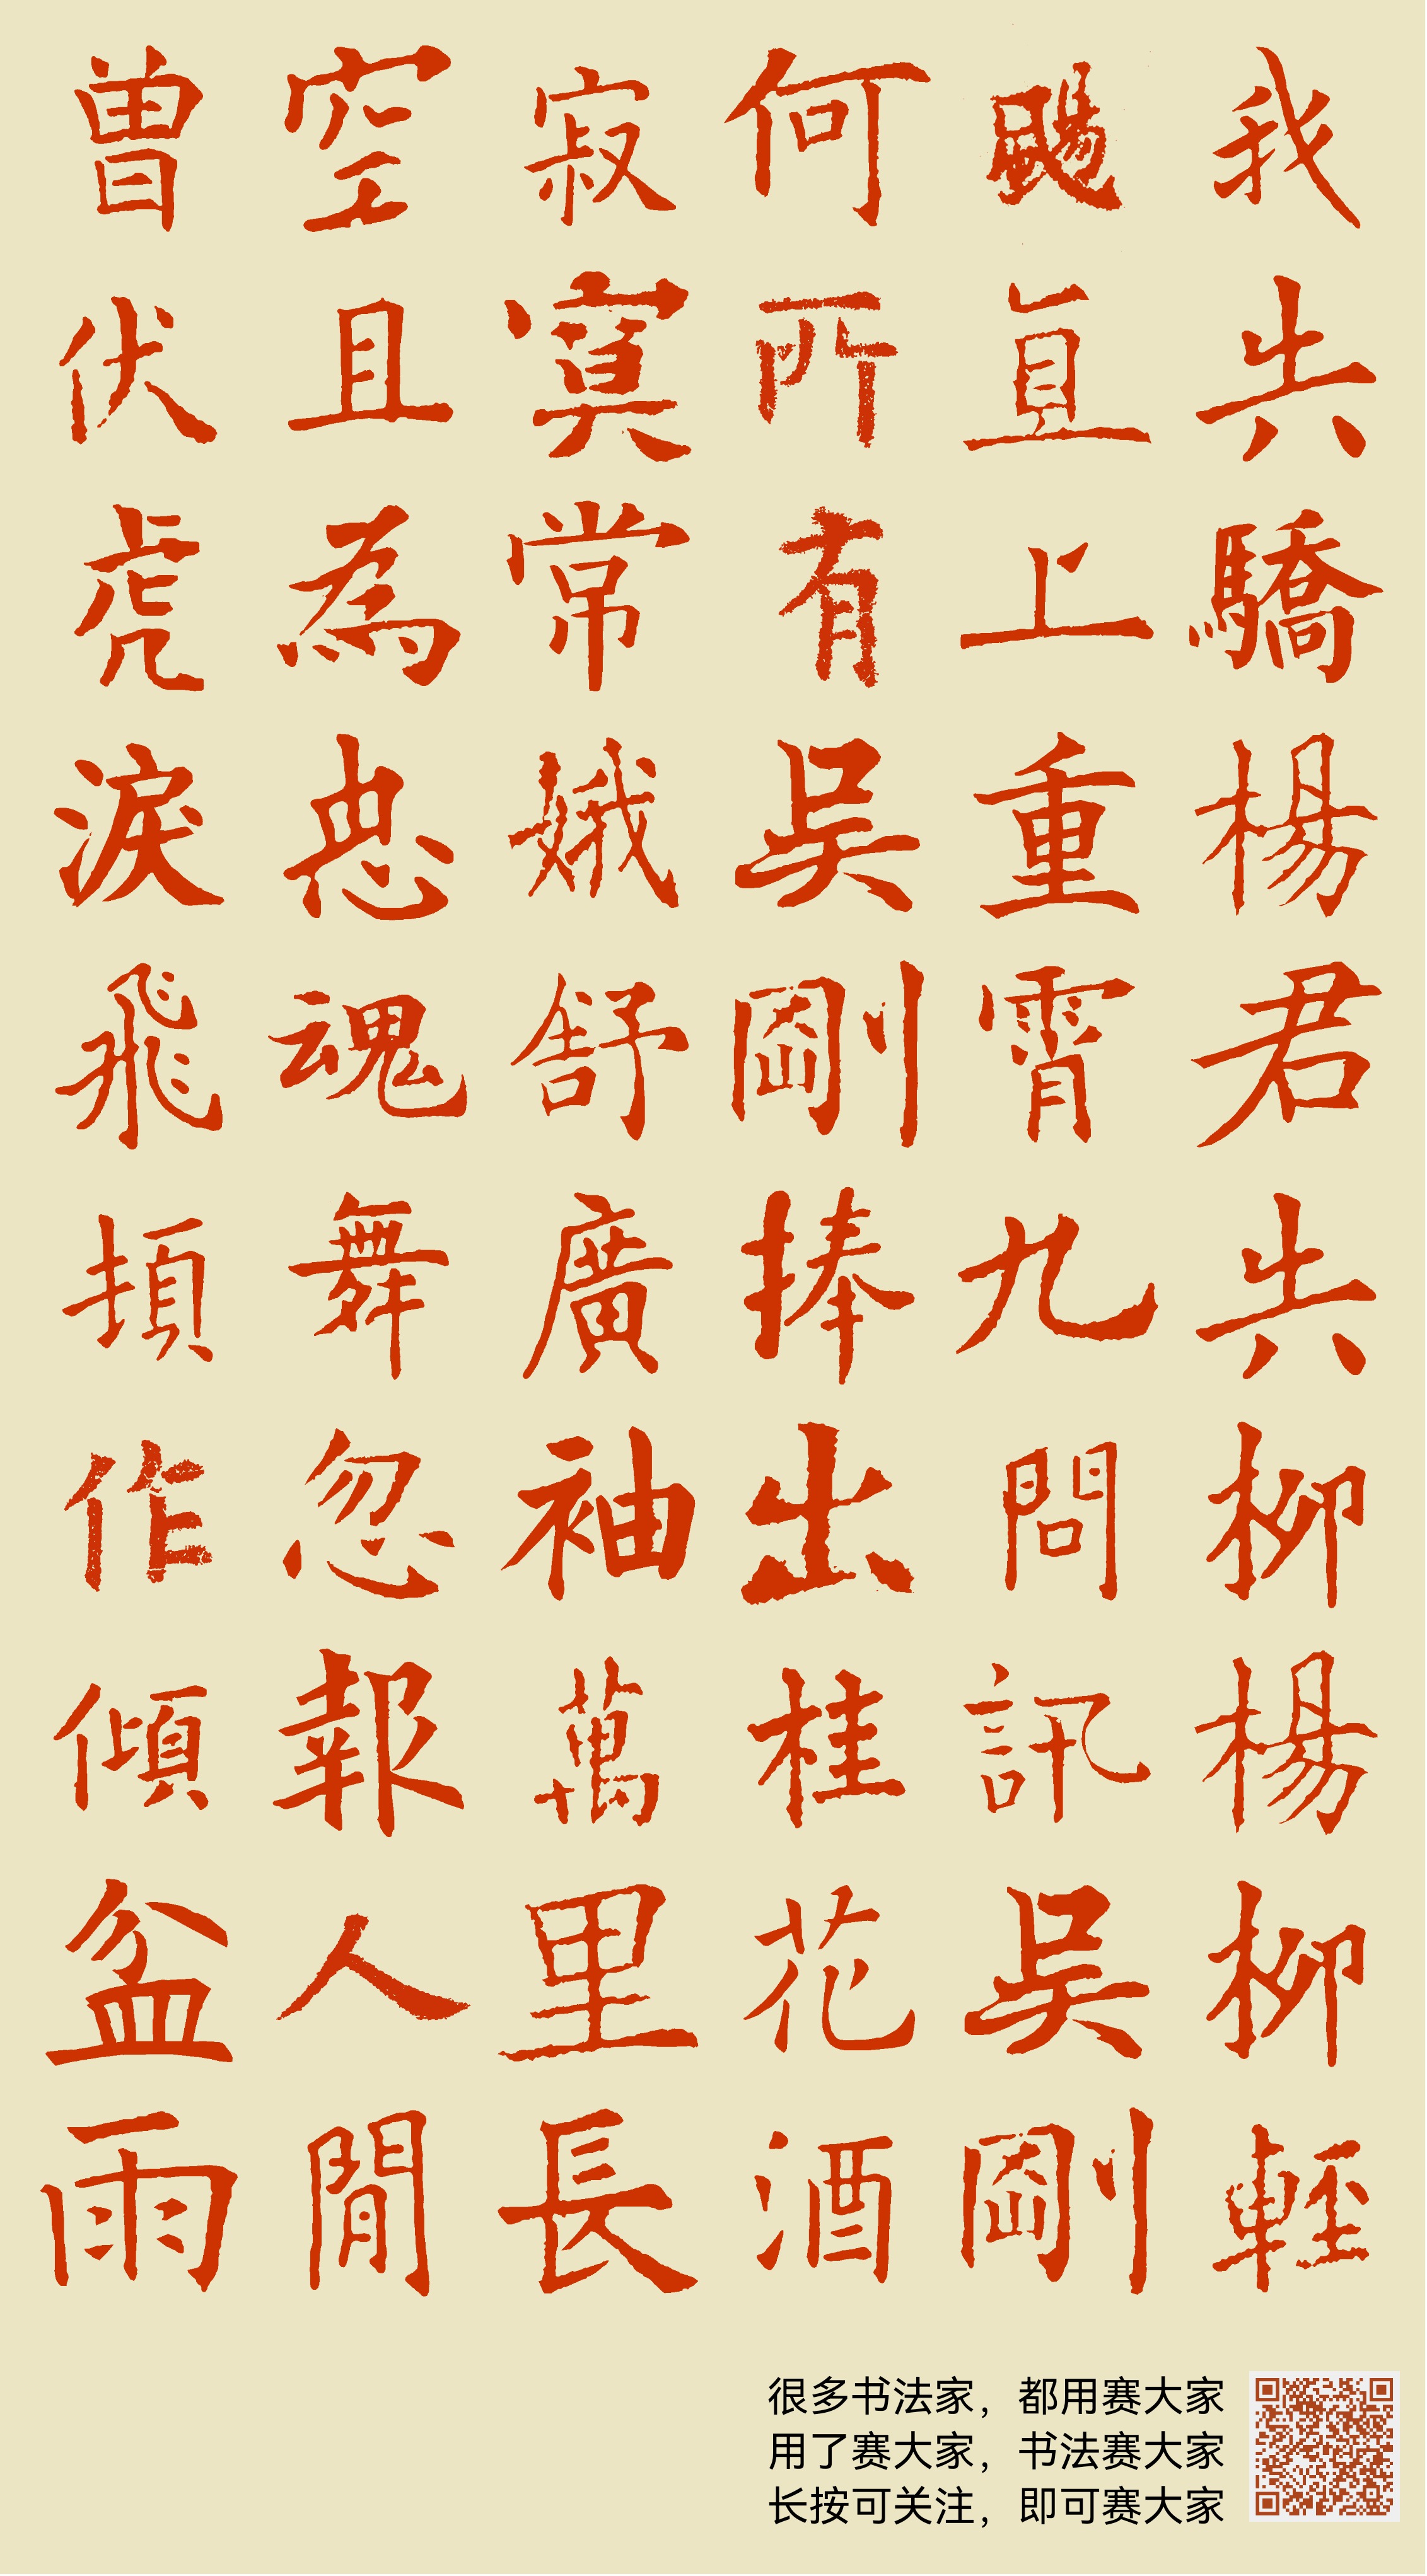 我失驕楊君失柳楊柳輕
颺直上重霄九問訊吳剛
何所有吳剛捧出桂花酒
寂寞常娥舒廣袖萬里長
空且為忠魂舞忽報人閒
曾伏虎淚飛頓作傾盆雨
很多书法家，都用赛大家
用了赛大家，书法赛大家
长按可关注，即可赛大家